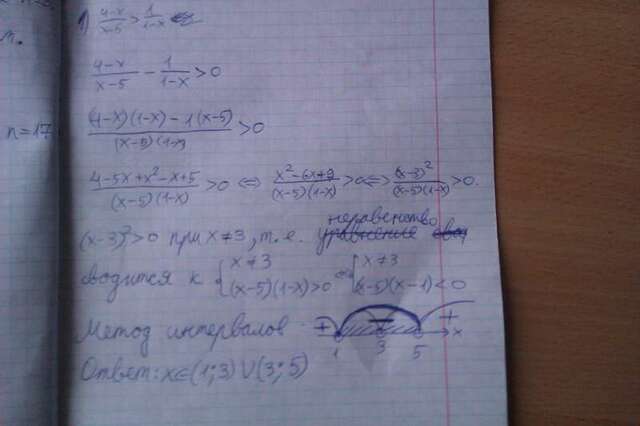 1) (4-x)/(x-5) > 1/(1-x)
(4-x)/(x-5) - 1/(1-x) > 0
n=17
((4-x)(1-x) - 1(x-5))/((x-5)(1-x) > 0
(4-5x+x²-x+5)/((x-5)(1-x)) > 0 ⇔ (x²-6x+9)/((x-5)(1-x)) > 0 ⇔ (x-3)²/((x-5)(1-x)) > 0.
(x-3)² > 0 при x≠3, т.е. неравенство
водится к { x≠3 ⇔ { x≠3
(x-5)(1-x)>0 (x-5)(x-1)<0
Метод интервалов
+ - + x
1 3 5
Ответ: x∈(1;3)∪(3;5)